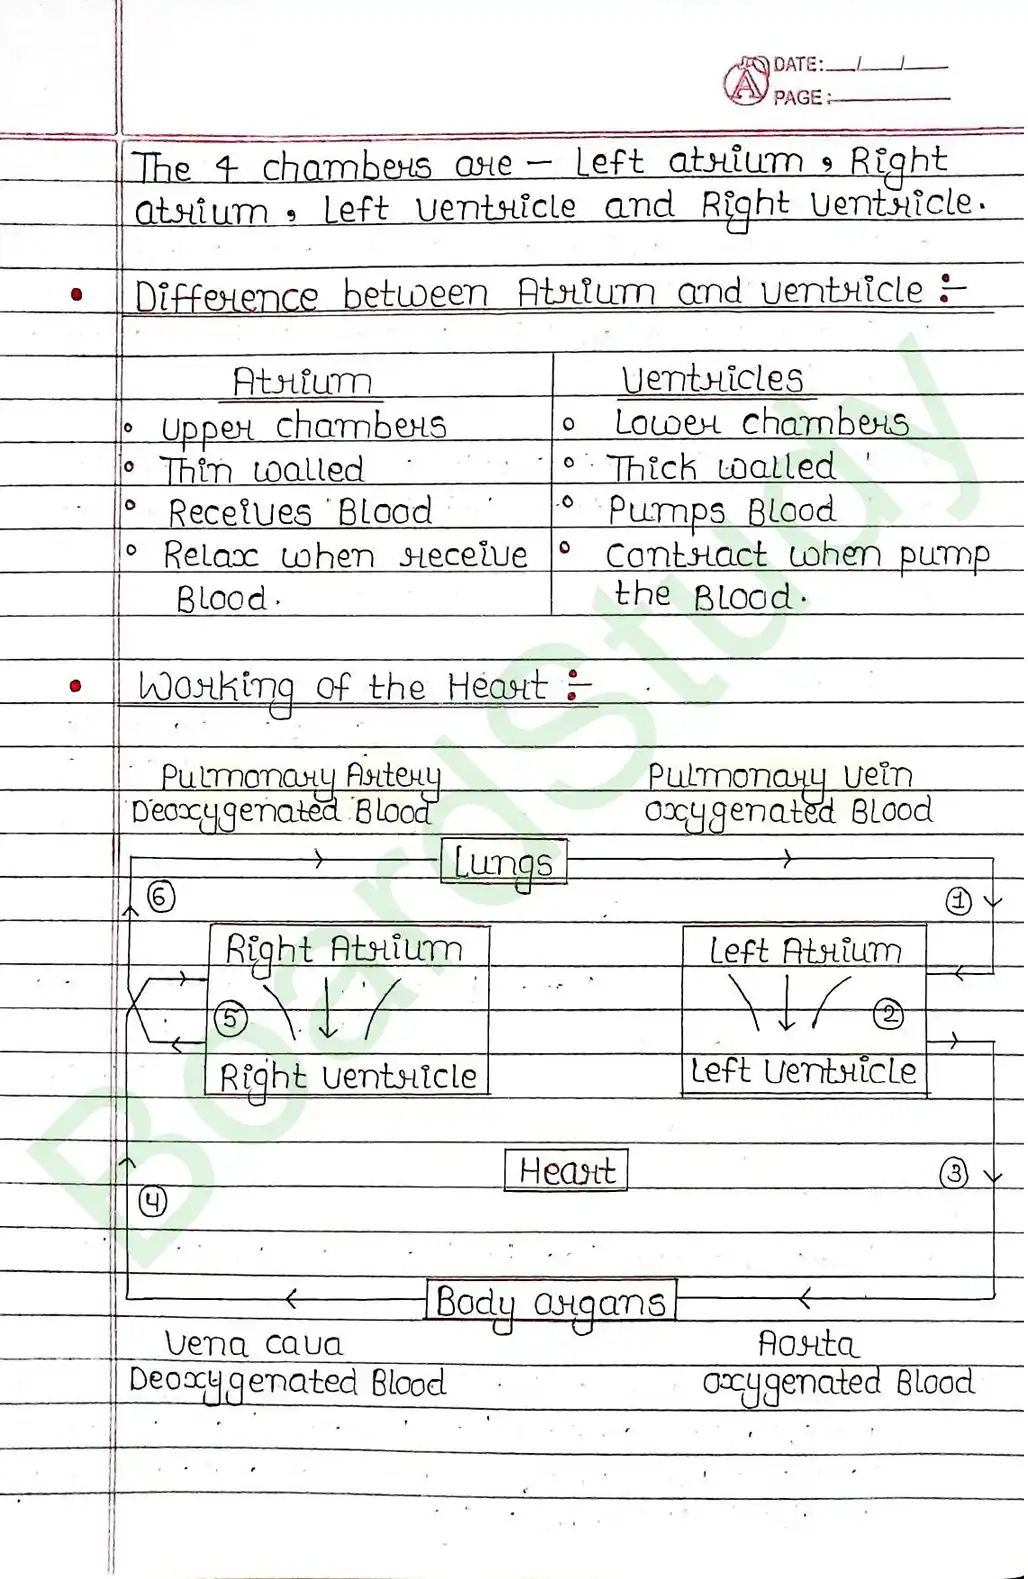 DATE: / /
PAGE:
The 4 chambers are – Left atrium, Right
atrium, Left ventricle and Right ventricle.
Difference between Atrium and ventricle :-
Atrium
Ventricles
Upper chambers
Lower chambers
Thin walled
Thick walled
Receives Blood
Pumps Blood
Relax when receive
Contract when pump
Blood.
the Blood.
Working of the Heart :-
Pulmonary Artery
Pulmonary vein
Deoxygenated Blood
oxygenated Blood
Lungs
6
1
Right Atrium
Left Atrium
5
2
Right ventricle
Left Ventricle
Heart
3
4
Body organs
Vena cava
Aorta
Deoxygenated Blood
oxygenated Blood
BoardStudy